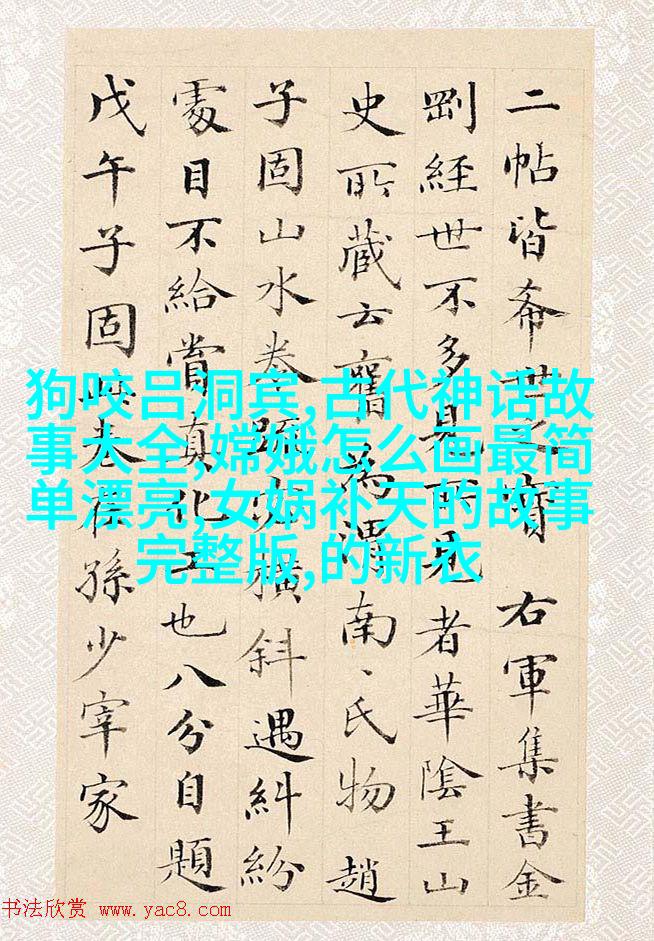 二帖皆希世之寶 右軍集書金
剛經世不多見所見者華陰王山
史所藏云舊為渭南、氏物趙
子固山水卷疏橫斜遇糾紛
處目不給賞真化工也八分自題
戊午子固此卷在孫少宰家
狗咬吕洞宾,古代神话故
事大全,嫦娥怎么画最简
单漂亮,女娲补天的故事
完整版,的新衣
书法欣赏 www.yac8.com